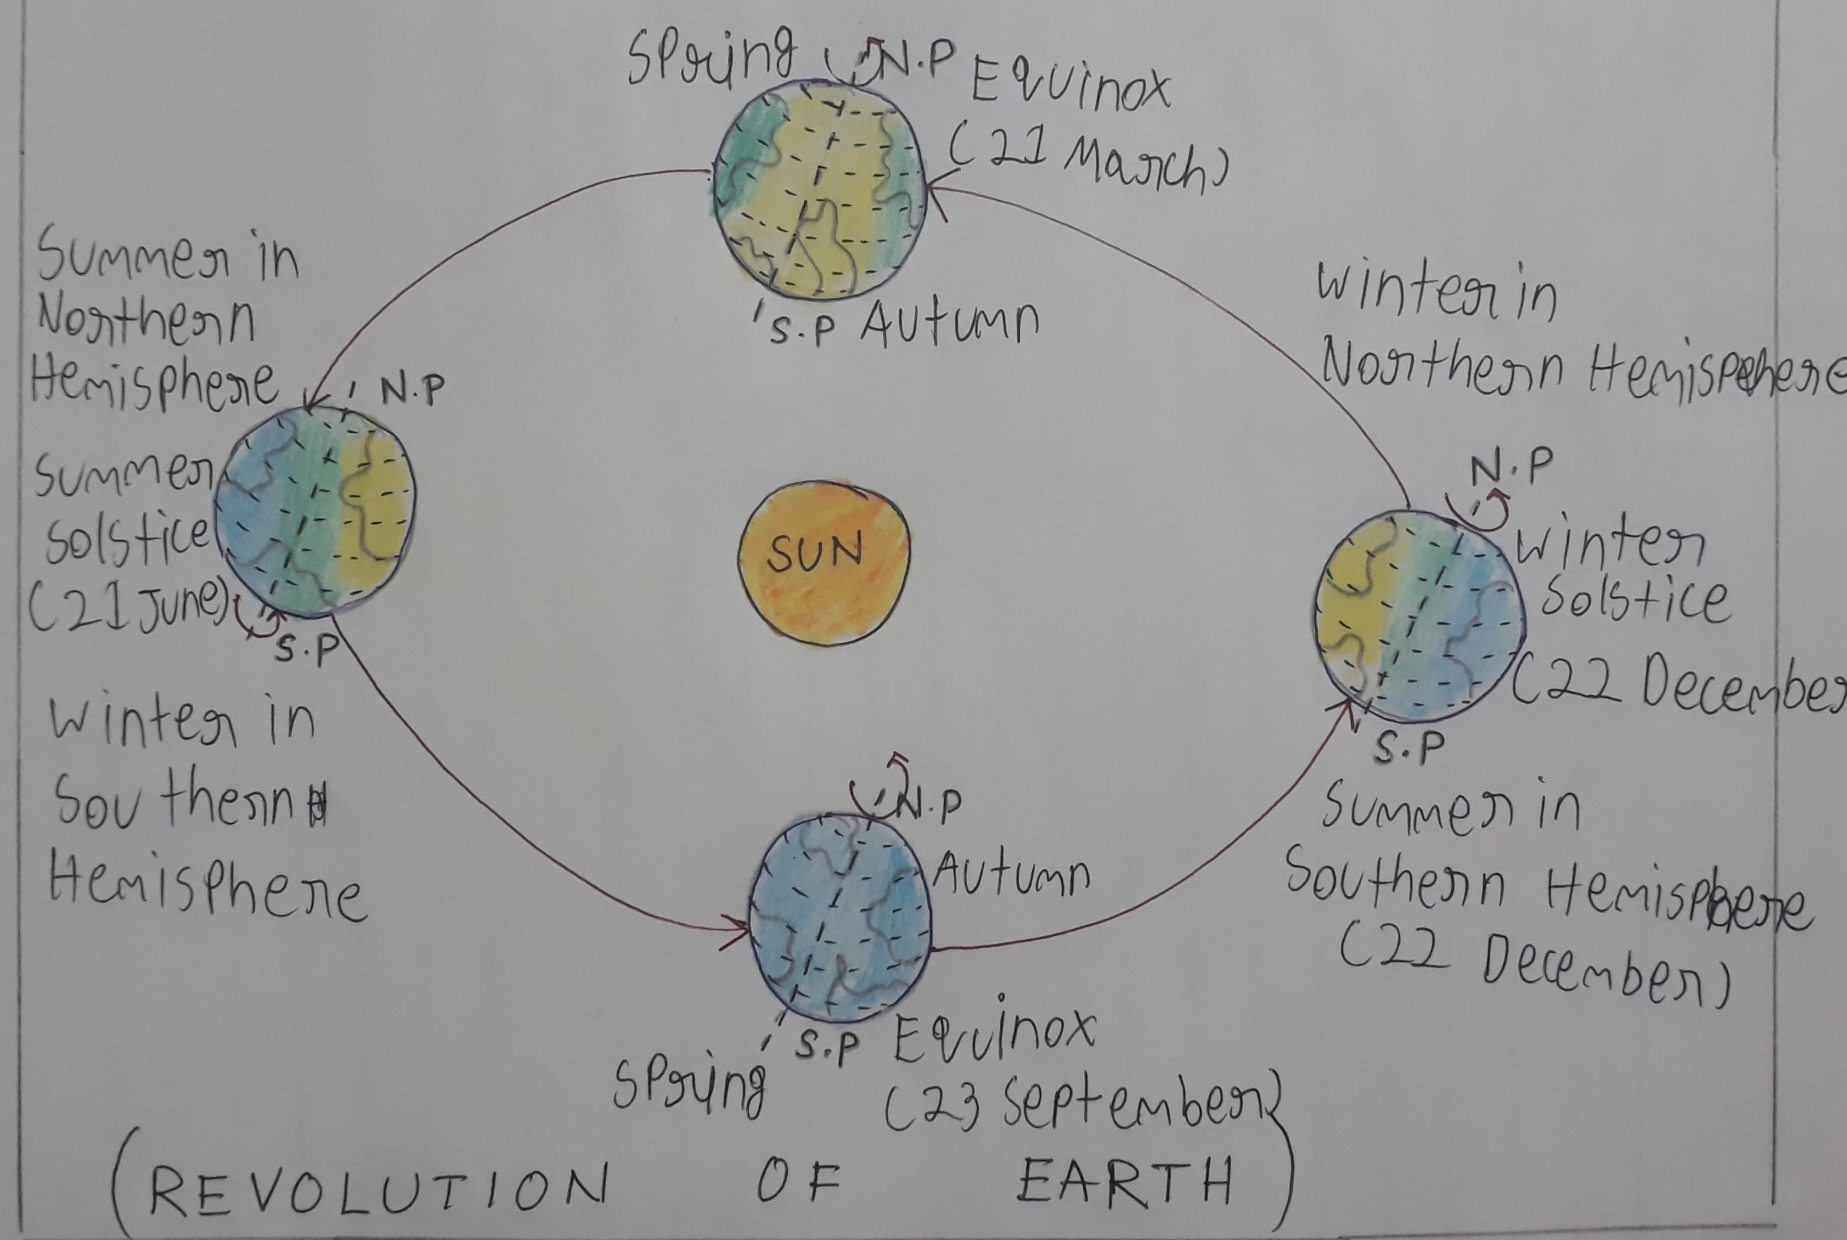 Spring N.P Equinox
(21 March)
S.P Autumn
Summer in
Northern
Hemisphere
N.P
Summer
Solstice
(21 June)
S.P
Winter in
Southern
Hemisphere
SUN
Winter in
Northern Hemisphere
N.P
Winter
Solstice
(22 December
S.P
Summer in
Southern Hemisphere
(22 December)
N.P
Autumn
S.P Equinox
Spring
(23 September)
(REVOLUTION OF EARTH)